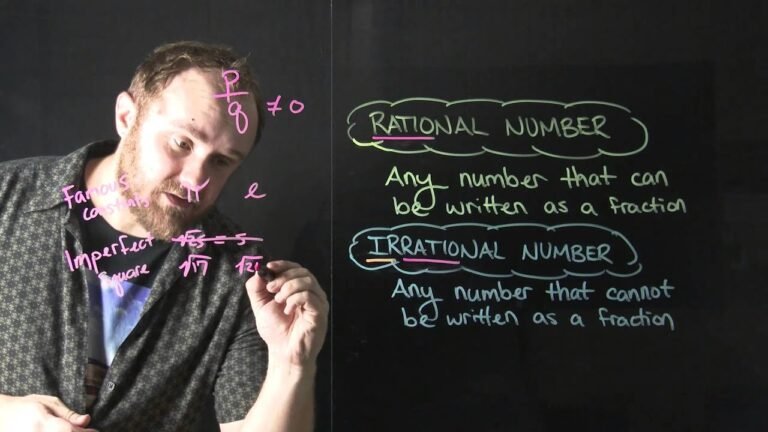 p
q ≠ 0
Famous constants π e
Imperfect square √25 = 5
√17
RATIONAL NUMBER
Any number that can
be written as a fraction
IRRATIONAL NUMBER
Any number that cannot
be written as a fraction